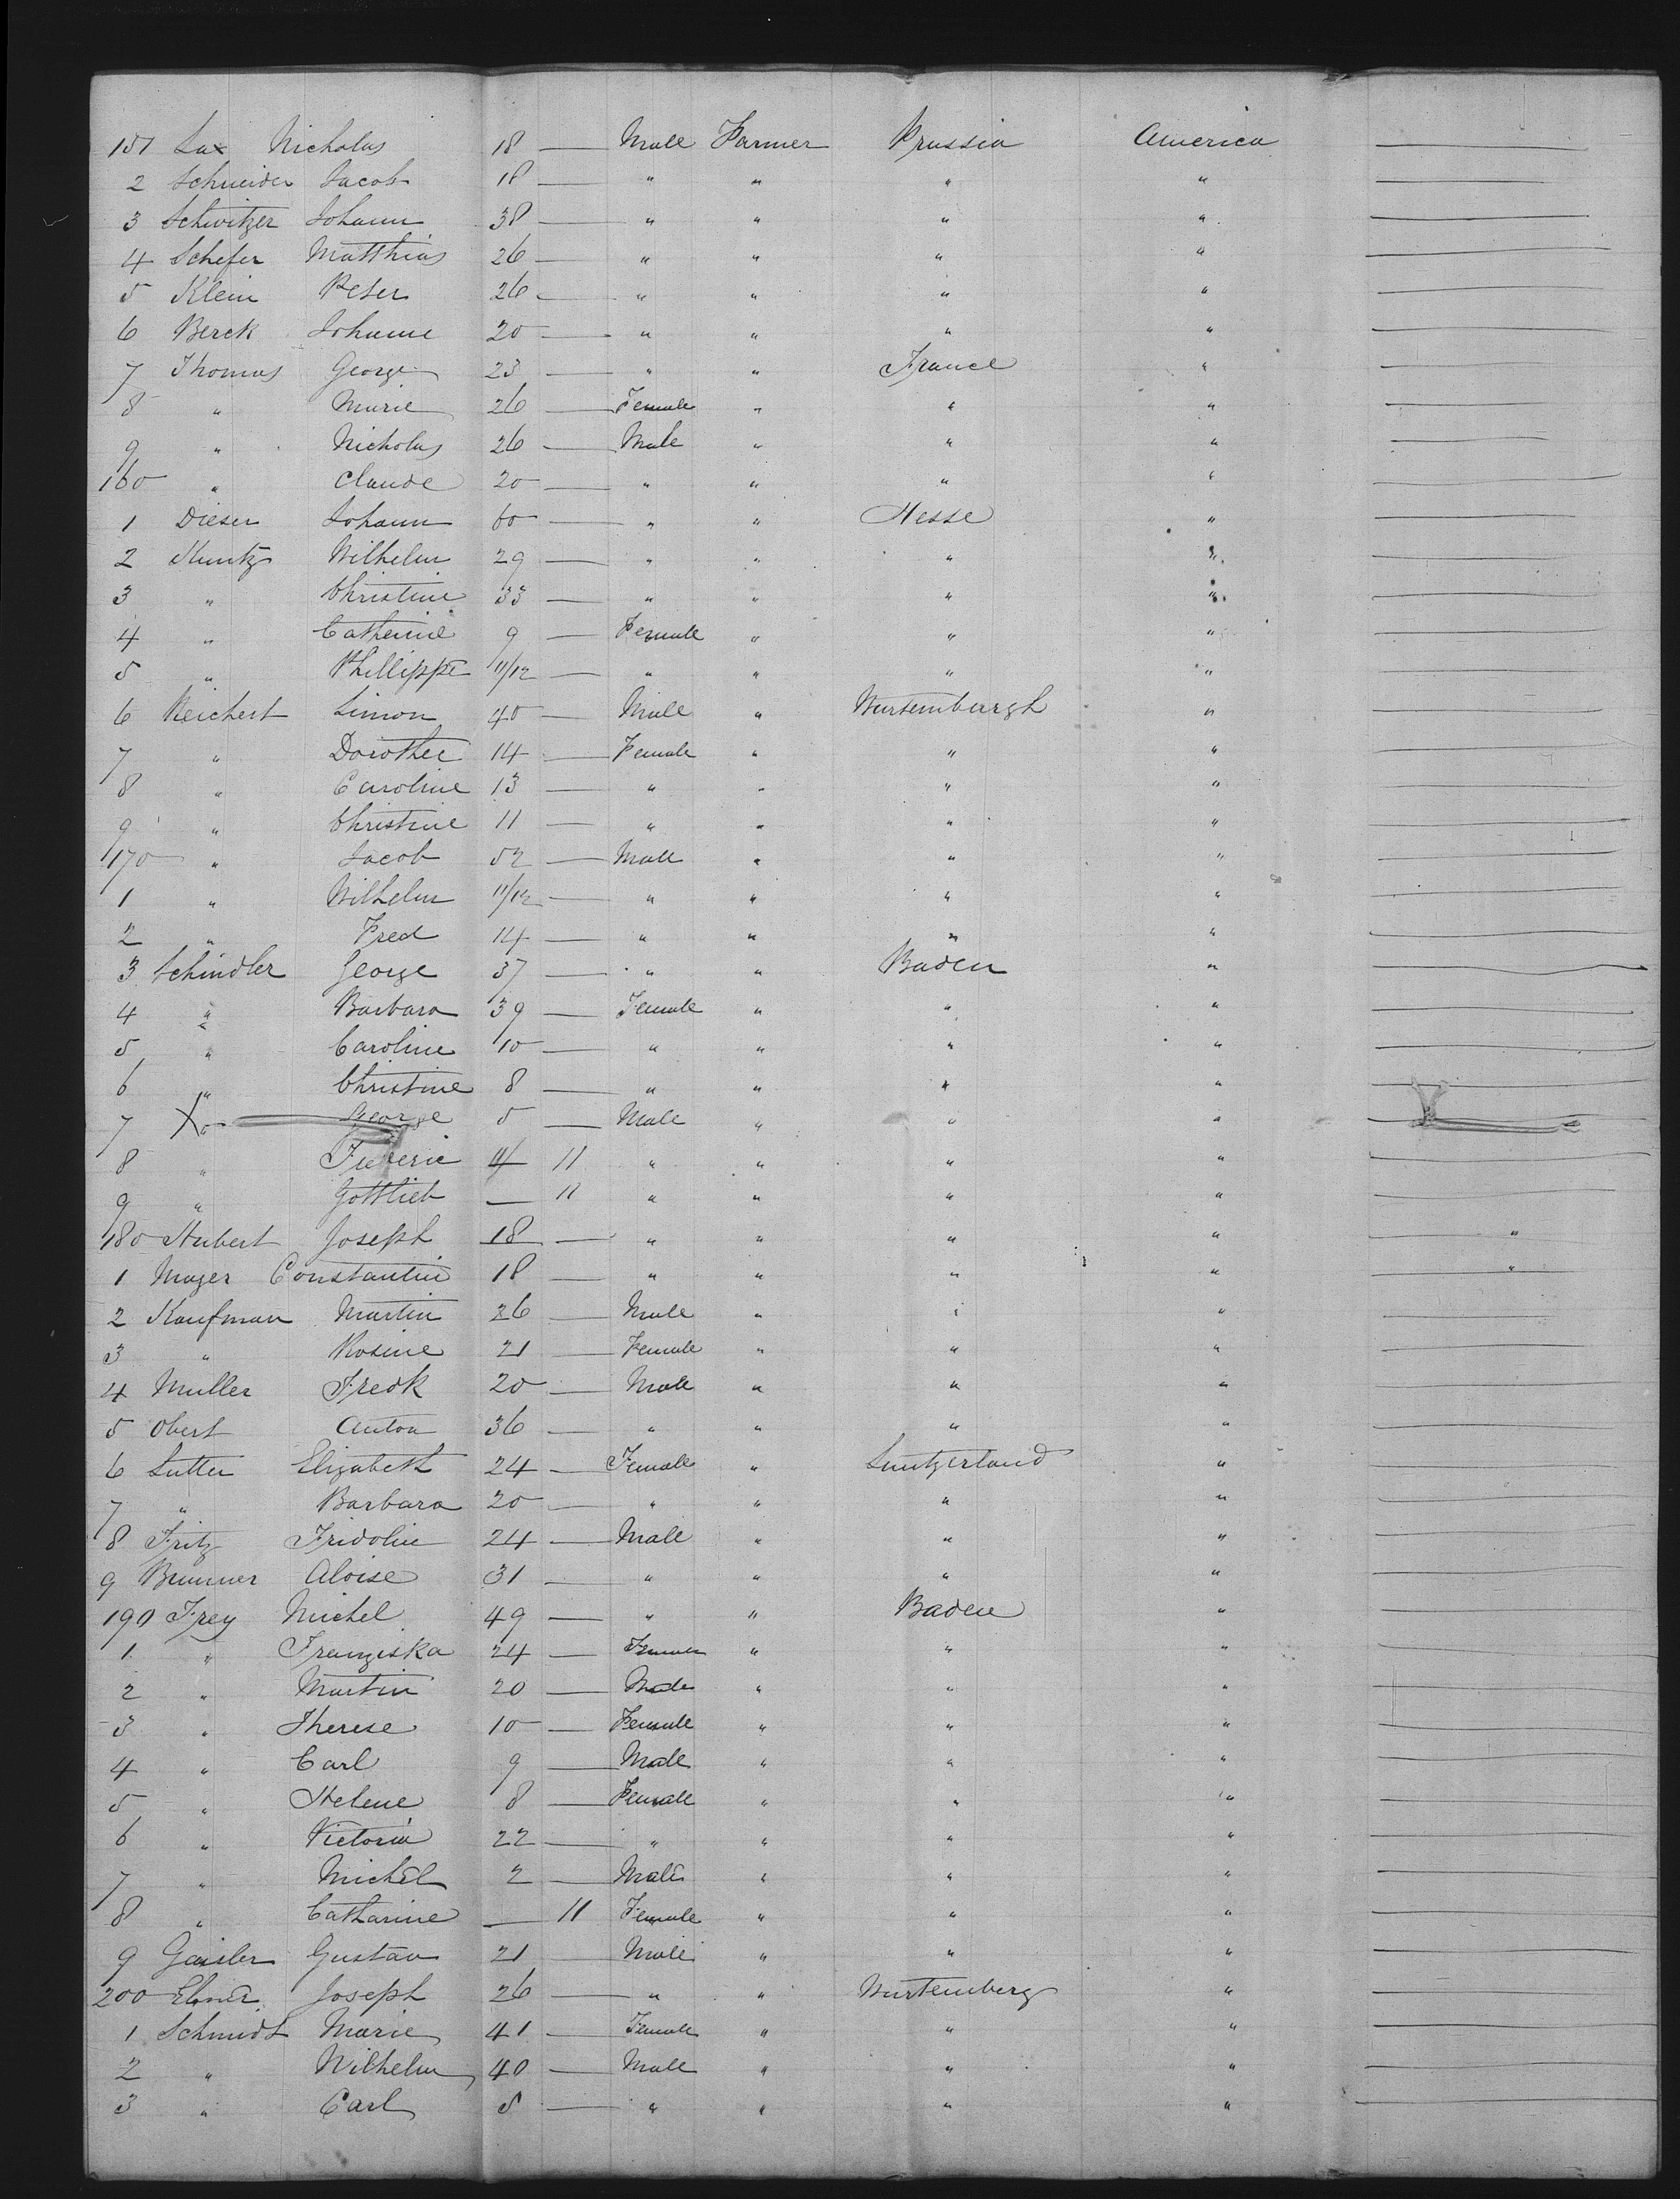 151 Lax Nicholas 18 — Male Farmer Prussia America —
2 Schneider Jacob 18 — " " " " —
3 Schwitzer Johann 38 — " " " " —
4 Schefer Matthias 26 — " " " " —
5 Klein Peter 26 — " " " " —
6 Berck Johanne 20 — " " " " —
7 Thomas George 23 — " " France " —
8 " Marie 26 — Female " " " —
9 " Nicholas 26 — Male " " " —
160 " Claude 20 — " " " " —
1 Dieser Johann 60 — " " Hesse " —
2 Kuntz Wilhelm 29 — " " " " —
3 " Christine 33 — " " " " —
4 " Catherine 9 — Female " " " —
5 " Phillippe 11/12 — " " " " —
6 Reichert Simon 40 — Male " Wurtemburgh " —
7 " Dorothee 14 — Female " " " —
8 " Caroline 13 — " " " " —
9 " Christine 11 — " " " " —
170 " Jacob 52 — Male " " " —
1 " Wilhelm 11/12 — " " " " —
2 " Fred 14 — " " " " —
3 Schindler George 37 — " " Baden " —
4 " Barbara 39 — Female " " " —
5 " Caroline 10 — " " " " —
6 " Christine 8 — " " " " —
7 X " George 5 — Male " " " —
8 " 11 " " " " —
9 " Gottlieb — 11 " " " " —
180 Hubert Joseph 18 — " " " " — "
1 Mayer Constantin 18 — " " " " — "
2 Kaufman Martin 26 — Male " " " —
3 " Rosine 21 — Female " " " —
4 Muller Fredk 20 — Male " " " —
5 Obert Anton 36 — " " " " —
6 Sutter Elizabeth 24 — Female " Switzerland " —
7 " Barbara 20 — " " " " —
8 Fritz Fridolin 24 — Male " " " —
9 Brunner Aloise 31 — " " " " —
190 Frey Michel 49 — " " Baden " —
1 " Franziska 24 — Female " " " —
2 " Martin 20 — Male " " " —
3 " Therese 10 — Female " " " —
4 " Carl 9 — Male " " " —
5 " Helene 8 — Female " " " —
6 " Victoria 22 — " " " " —
7 " Michel 2 — Male " " " —
8 " Catharine — 11 Female " " " —
9 Gaisler Gustav 21 — Male " " " —
200 Joseph 26 — " " Wurtemberg " —
1 Schmidt Marie 41 — Female " " " —
2 " Wilhelm 40 — Male " " " —
3 " Carl 8 — " " " " —